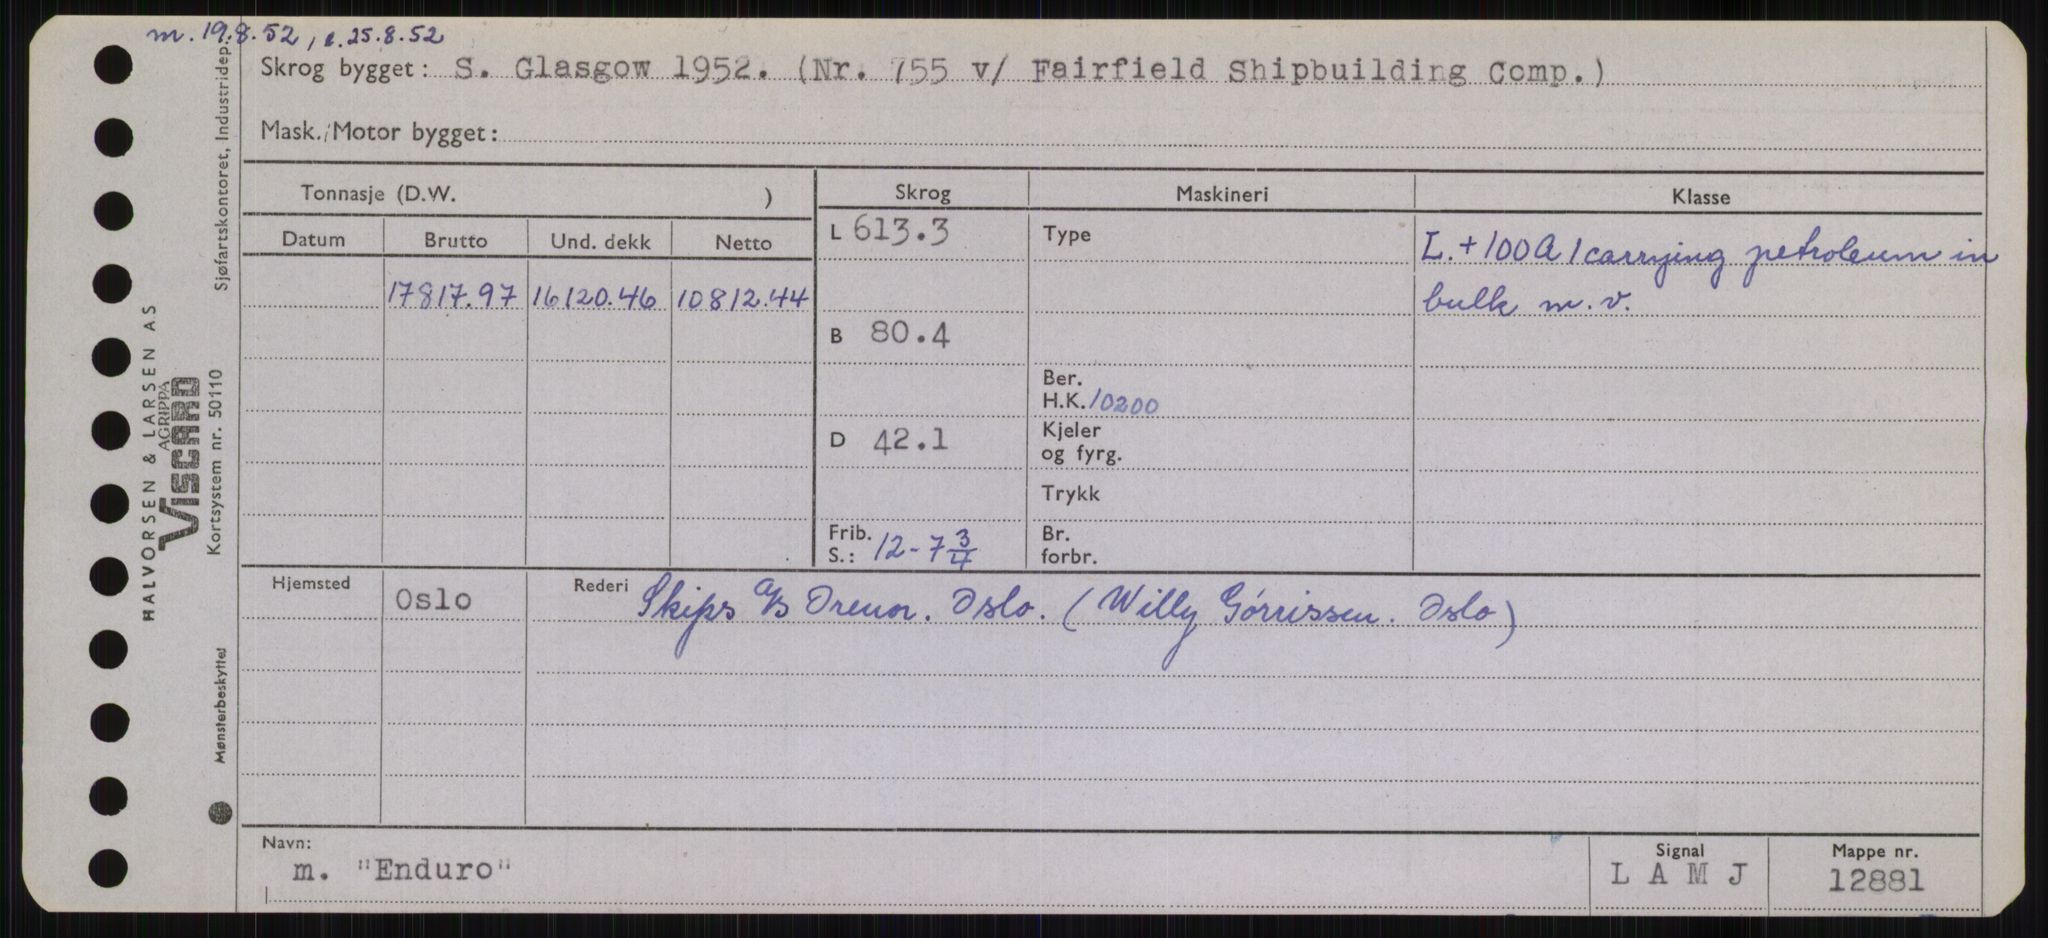 m. 19.8.52, e. 25.8.52
Skrog bygget: S. Glasgow 1952. (Nr. 755 v/ Fairfield Shipbuilding Comp.)
Mask./Motor bygget:
Tonnasje (D.W. )
Skrog
Maskineri
Klasse
Datum
Brutto
Und. dekk
Netto
L 613.3
Type
L. + 100 A 1 carrying petroleum in
17817.97 16120.46 10812.44
bulk m.v.
B 80.4
Ber.
H.K. 10200
D 42.1
Kjeler
og fyrg.
Trykk
Frib.
S.: 12-7 3/4
Br.
forbr.
Hjemsted
Oslo
Rederi
Skips A/S Orenor. Oslo. (Willy Gørrissen. Oslo)
Navn:
m. "Enduro"
Signal
L A M J
Mappe nr.
12881
HALVORSEN & LARSEN AS
AGRIPPA
VISCARD
Kortsystem nr. 50110
Sjøfartskontoret, Industridep.
Mønsterbeskyttet